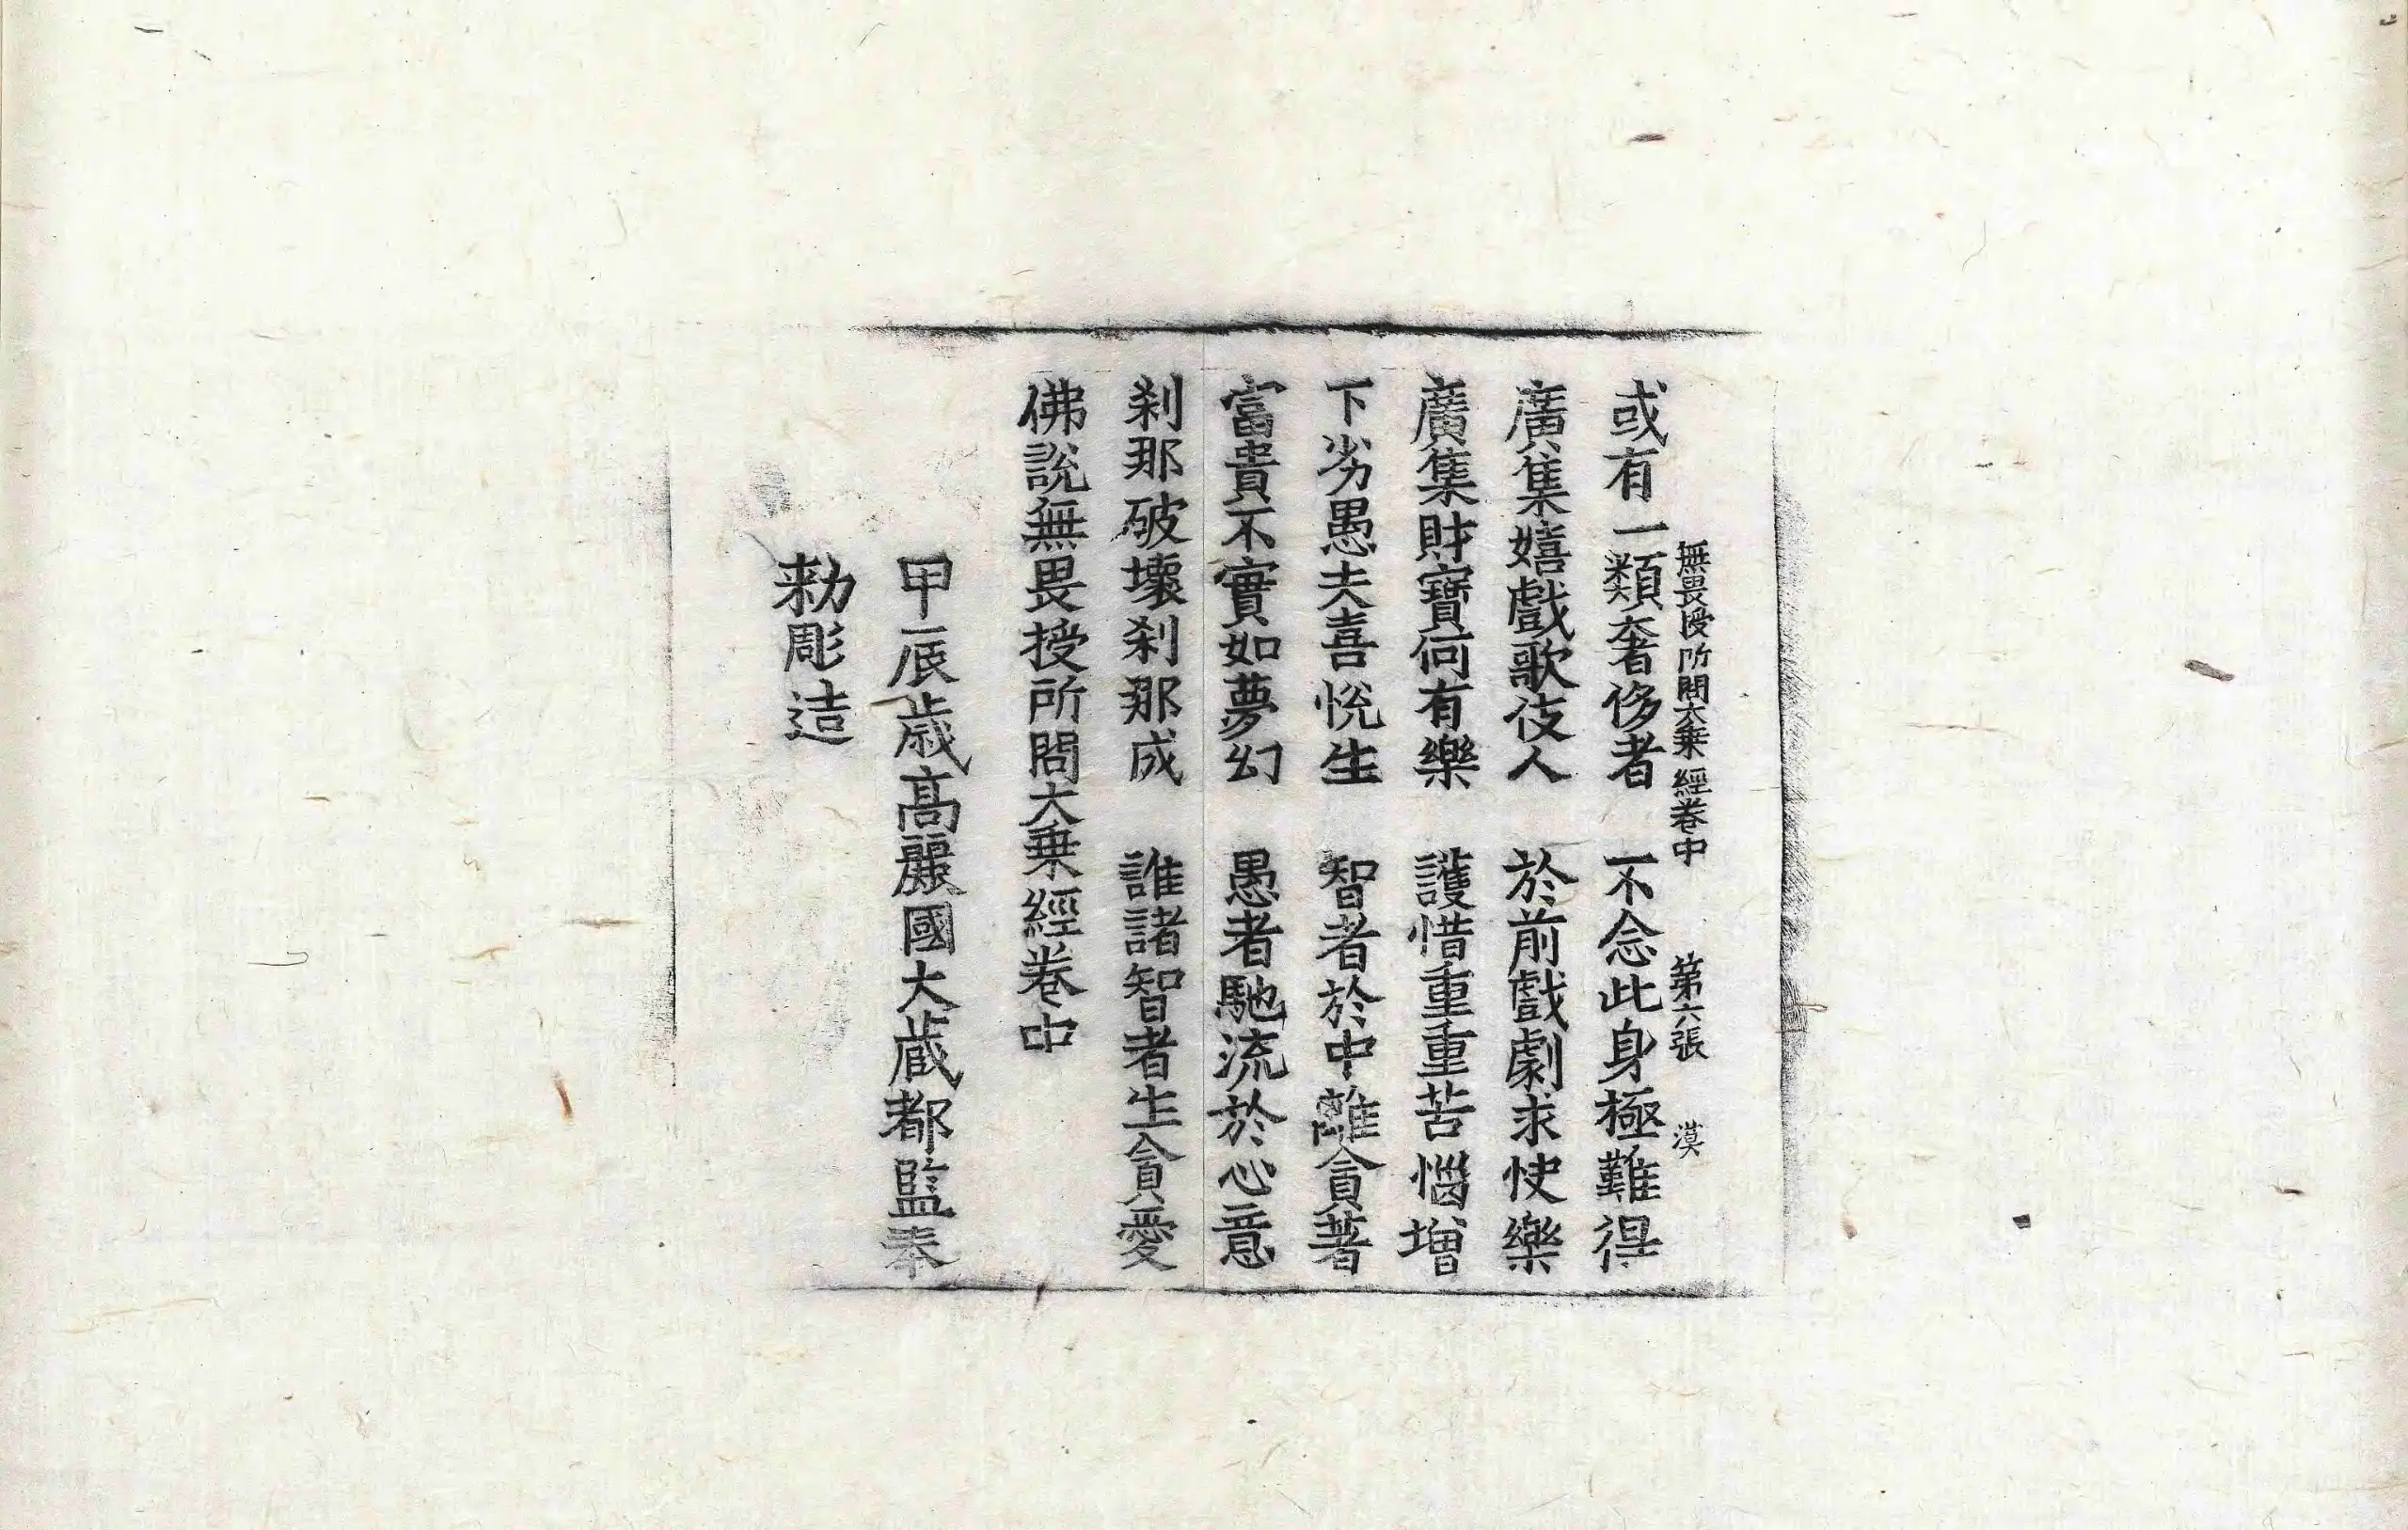 無畏授所問大乗經卷中 第六張 漠
或有一類奢侈者 不念此身極難得
廣集嬉戲歌伎人 於前戲劇求快樂
廣集財寶何有樂 護惜重重苦惱增
下劣愚夫喜悅生 智者於中離貪著
富貴不實如夢幻 愚者馳流於心意
刹那破壞刹那成 誰諸智者生貪愛
佛說無畏授所問大乗經卷中
甲辰歳高麗國大藏都監奉
勑彫造